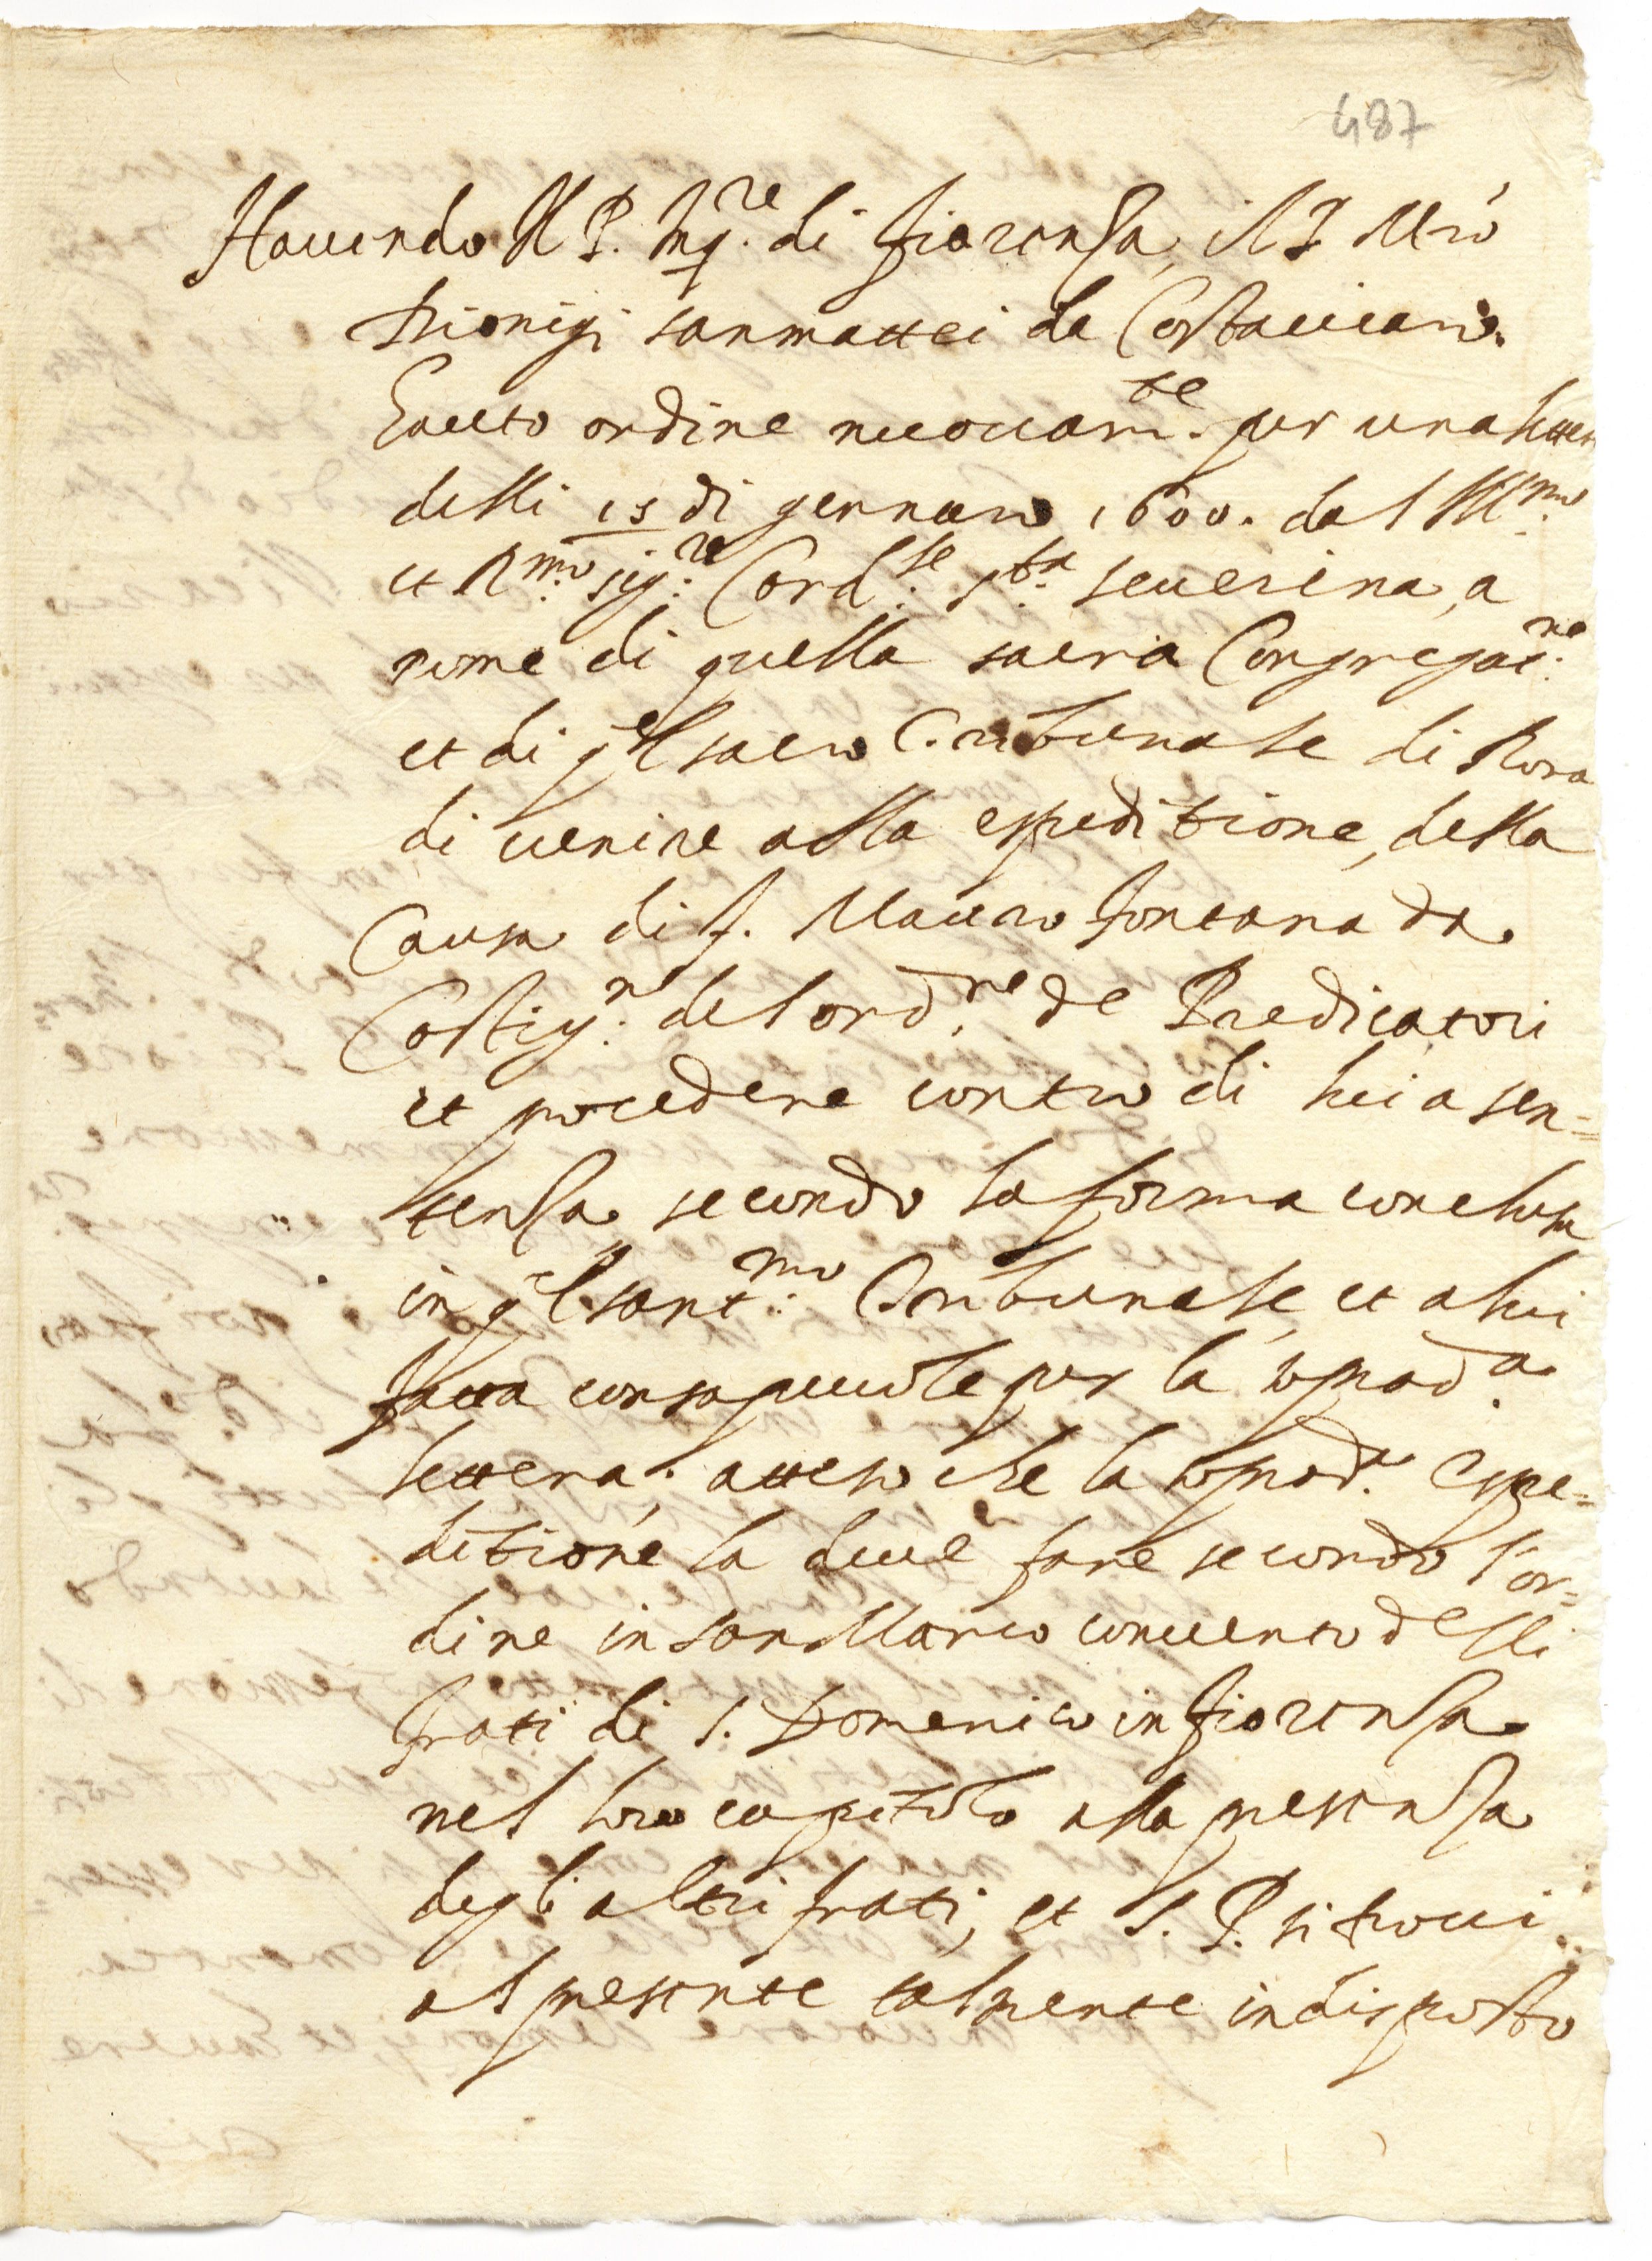 487
Hauendo Il P. Inq.re di fiorenza, il P. Mro
Dionigi sanmattei da Costacciaro.
hauuto ordine nuouam.te per una lettera
delli 15 di gennaro 1600. dal Ill.mo
et R.mo sig.re Cardl.le S.ta seuerina, a
nome di quella sacra Congregat.ne
et di ql sacro Tribunale di Roma
di uenire alla espeditione, della
Causa di f. Mauro fontana da
Castig.ne del ord.ne de Predicatori
et procedere contro di lui a sen=
tenza secondo la forma conclusa
in ql sant.mo Tribunale, et a lui
fatta consapeuole per la soprad.a
lettera. atteso che la soprad.a espe=
ditione la deue fare secondo l'or=
dine in san Marco conuento delli
frati di S. Domenico in fiorenza
nel loro capitolo alla presenza
degli altri frati, et S. P. si troui
al presente talmente indisposto